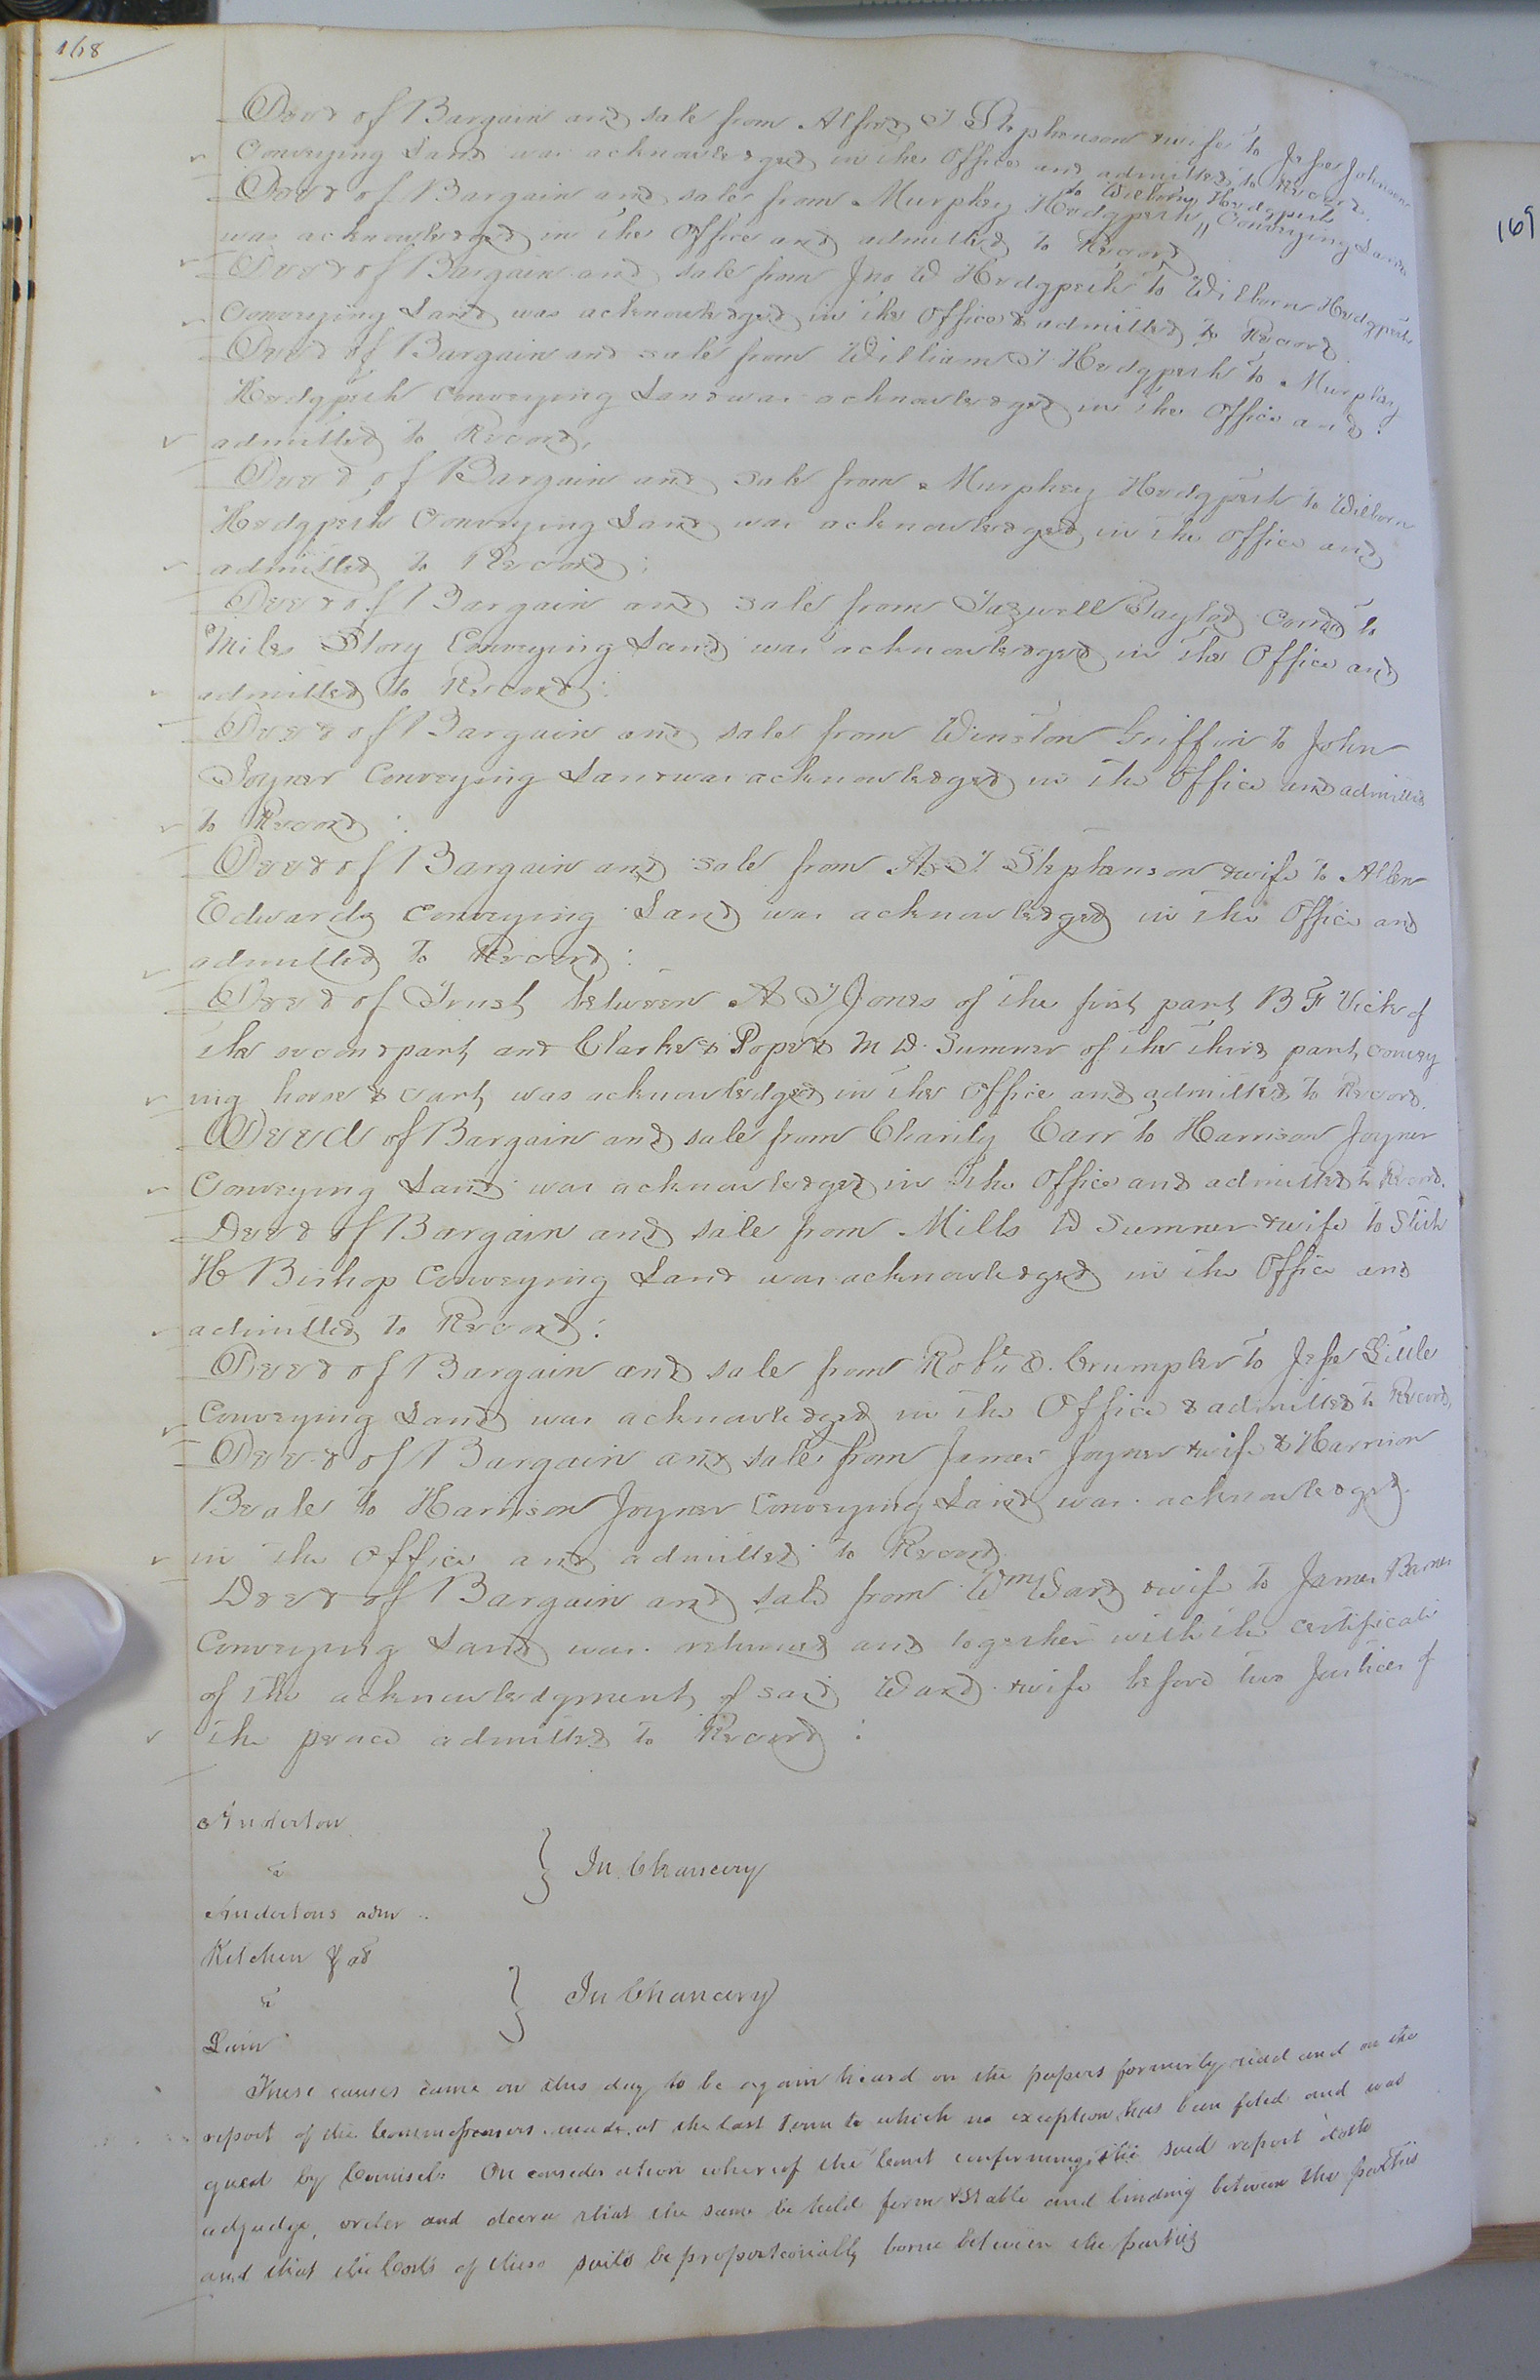 168
Deed of Bargain and sale from Alfred T Stephenson & wife to Jesse Johnson
Conveying Land was acknowledged in the Office and admitted to Record.
to Wilborn Hedgpeth
Deed of Bargain and sale from Murphey Hedgpeth " Conveying Land
was acknowledged in the Office and admitted to Record
Deed of Bargain and sale from Jno W Hedgpeth to Wilborn Hedgpeth
Conveying Land was acknowledged in the Office & admitted to Record
Deed of Bargain and sale from William T Hedgpeth to Murphey
Hedgpeth Conveying Land was acknowledged in the Office and
admitted to Record,
Deed of Bargain and sale from Murphey Hedgpeth to Wilborn
Hedgpeth Conveying Land was acknowledged in the Office and
admitted to Record:
Deed of Bargain and sale from Tazwell Taylor to
Miles Story Conveying Land was acknowledged in the Office and
admitted to Record:
Deed of Bargain and sale from Winston Griffin to John
Joyner Conveying Land was acknowledged in the Office and admitted
to Record:
Deed of Bargain and sale from A T Stephenson & wife to Allen
Edwards Conveying Land was acknowledged in the Office and
admitted to Record:
Deed of Trust between A T Jones of the first part B F Vick of
the second part and Clarke & Pope & M W. Sumner of the third part, convey
ing horse & cart, was acknowledged in the Office and admitted to Record.
Deed of Bargain and sale from Charity Carr to Harrison Joyner
Conveying Land was acknowledged in the Office and admitted to Record.
Deed of Bargain and sale from Mills W Sumner & wife to
H Bishop Conveying Land was acknowledged in the Office and
admitted to Record:
Deed of Bargain and sale from Crumpler to Jesse Little
Conveying Land was acknowledged in the Office & admitted to Record,
Deed of Bargain and sale from James Joyner & wife & Harrison
Beale to Harrison Joyner Conveying Land was acknowledged.
in the Office and admitted to Record
Deed of Bargain and sale from Wm Ward & wife to James Barnes
Conveying Land was returned and together with the certificate
of the acknowledgment of said Ward & wife before two Justices of
the peace admitted to Record:
Anderton
v } In Chancery
Andertons adm
Kitchen
v } In Chancery
These causes came on this day to be again heard on the papers formerly read and on the
report of the Commissioners made at the last Term to which no exception has been filed and was
gued by Counsel: On consideration whereof the Court confirming the said report doth
adjudge, order and decree that the same be held firm & stable and binding between the parties
and that the Costs of these suits be proportionably borne between the parties
169